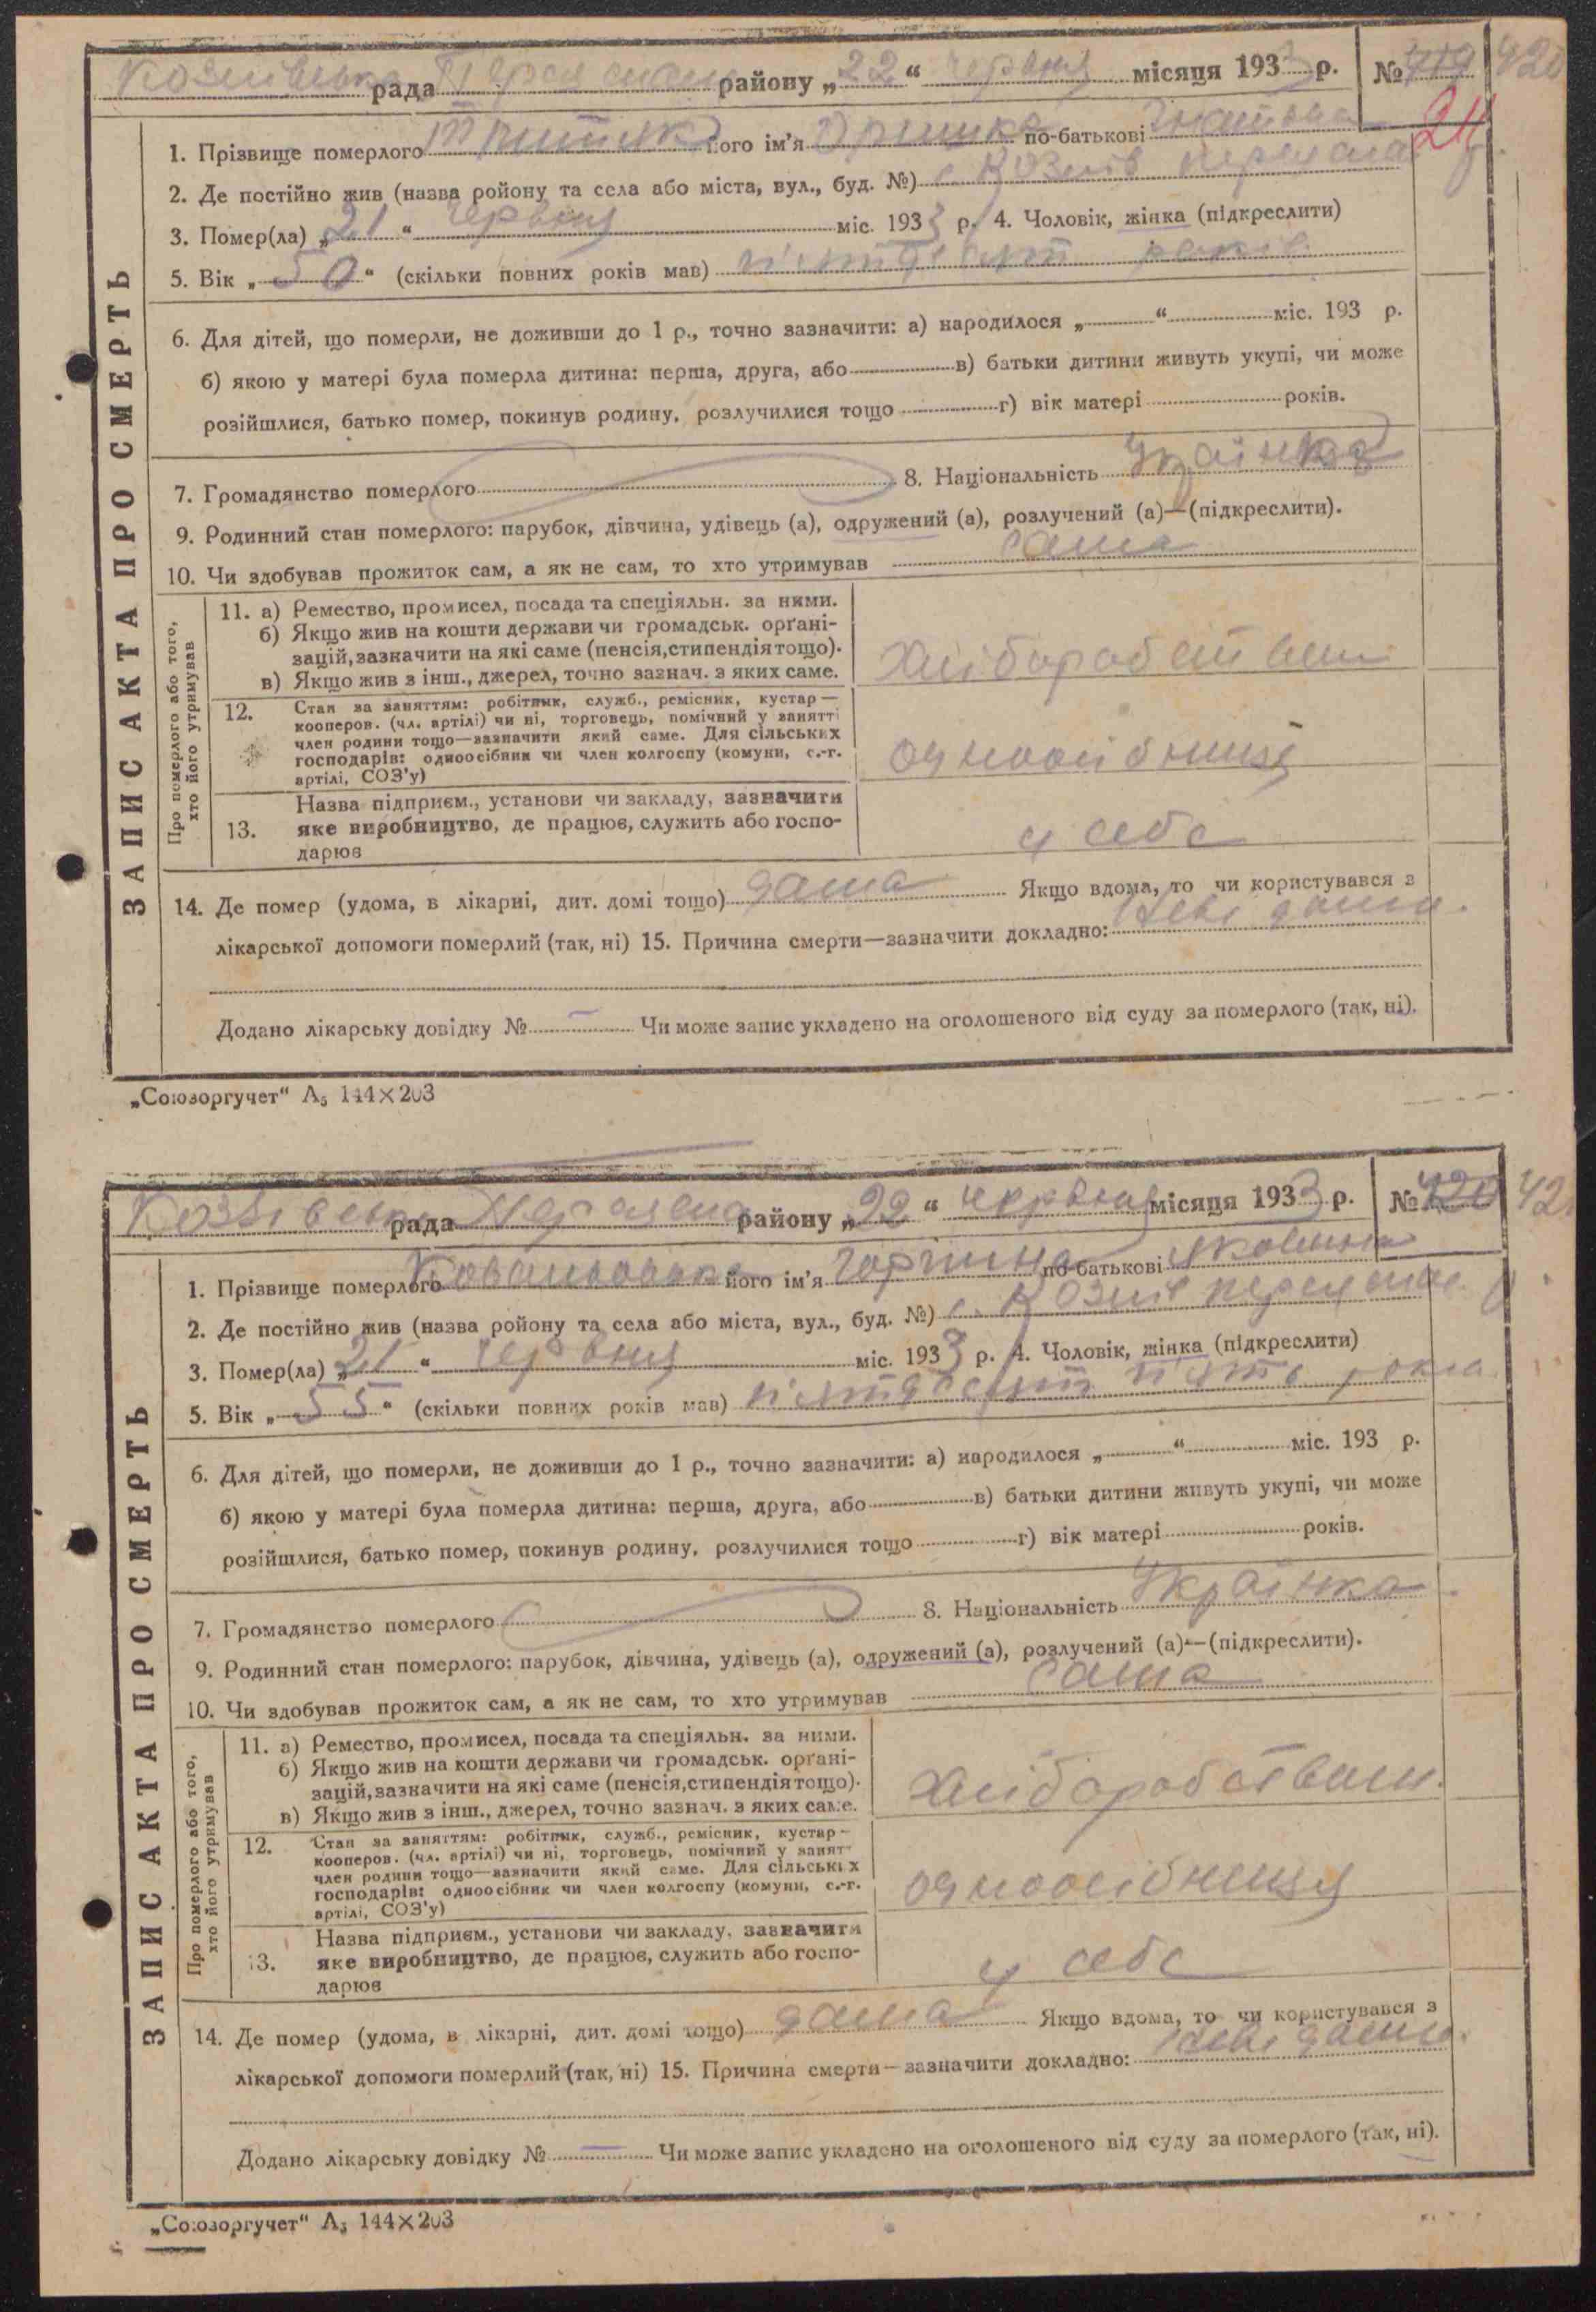 Козлівська рада Переяславськ району „22“ червня місяця 1933 р. № 419 420
24
1. Прізвище померлого його ім'я Оришка по-батькові
2. Де постійно жив (назва ройону та села або міста, вул., буд. №) с. Козлів Переяслав
3. Помер(ла) „21“ червня міс. 1933 р. 4. Чоловік, жінка (підкреслити)
5. Вік „50“ (скільки повних років мав) п'ятдесят років
6. Для дітей, що померли, не доживши до 1 р., точно зазначити: а) народилося „ “ міс. 193 р.
б) якою у матері була померла дитина: перша, друга, або в) батьки дитини живуть укупі, чи може
розійшлися, батько помер, покинув родину, розлучилися тощо г) вік матері років.
7. Громадянство померлого 8. Національність Українка
9. Родинний стан померлого: парубок, дівчина, удівець (а), одружений (а), розлучений (а)—(підкреслити).
10. Чи здобував прожиток сам, а як не сам, то хто утримував сама
ЗАПИС АКТА ПРО СМЕРТЬ
Про померлого або того,
хто його утримував
11. а) Ремество, промисел, посада та спеціяльн. за ними.
б) Якщо жив на кошти держави чи громадськ. орґані-
зацій, зазначити на які саме (пенсія, стипендія тощо).
в) Якщо жив з інш., джерел, точно зазнач. з яких саме.
Хліборобством
12. Стан за заняттям: робітник, служб., ремісник, кустар—
кооперов. (чл. артілі) чи ні, торговець, помічний у занятті
член родини тощо—зазначити який саме. Для сільських
господарів: одноосібник чи член колгоспу (комуни, с.-г.
артілі, СОЗ'у)
одноосібниця
13. Назва підприєм., установи чи закладу, зазначити
яке виробництво, де працює, служить або госпо-
дарює
у себе
14. Де помер (удома, в лікарні, дит. домі тощо) дома Якщо вдома, то чи користувався з
лікарської допомоги померлий (так, ні) 15. Причина смерти—зазначити докладно:
Додано лікарську довідку № — Чи може запис укладено на оголошеного від суду за померлого (так, ні).
„Союзоргучет“ А5 144×203
Козлівська рада Переяслав району „22“ червня місяця 1933 р. № 420 42
1. Прізвище померлого його ім'я Горпина по-батькові Яковлівна
2. Де постійно жив (назва ройону та села або міста, вул., буд. №) с. Козлів Переяслав
3. Помер(ла) „21“ червня міс. 1933 р. 4. Чоловік, жінка (підкреслити)
5. Вік „55“ (скільки повних років мав) п'ятдесят п'ять
6. Для дітей, що померли, не доживши до 1 р., точно зазначити: а) народилося „ “ міс. 193 р.
б) якою у матері була померла дитина: перша, друга, або в) батьки дитини живуть укупі, чи може
розійшлися, батько помер, покинув родину, розлучилися тощо г) вік матері років.
7. Громадянство померлого 8. Національність Українка
9. Родинний стан померлого: парубок, дівчина, удівець (а), одружений (а), розлучений (а)—(підкреслити).
10. Чи здобував прожиток сам, а як не сам, то хто утримував сама
ЗАПИС АКТА ПРО СМЕРТЬ
Про померлого або того,
хто його утримував
11. а) Ремество, промисел, посада та спеціяльн. за ними.
б) Якщо жив на кошти держави чи громадськ. орґані-
зацій, зазначити на які саме (пенсія, стипендія тощо).
в) Якщо жив з інш., джерел, точно зазнач. з яких саме.
Хліборобством.
12. Стан за заняттям: робітник, служб., ремісник, кустар—
кооперов. (чл. артілі) чи ні, торговець, помічний у занятт
член родини тощо—зазначити який саме. Для сільських
господарів: одноосібник чи член колгоспу (комуни, с.-г.
артілі, СОЗ'у)
одноосібниця
13. Назва підприєм., установи чи закладу, зазначити
яке виробництво, де працює, служить або госпо-
дарює
у себе
14. Де помер (удома, в лікарні, дит. домі тощо) дома Якщо вдома, то чи користувався з
лікарської допомоги померлий (так, ні) 15. Причина смерти—зазначити докладно:
Додано лікарську довідку № — Чи може запис укладено на оголошеного від суду за померлого (так, ні).
„Союзоргучет“ А5 144×203